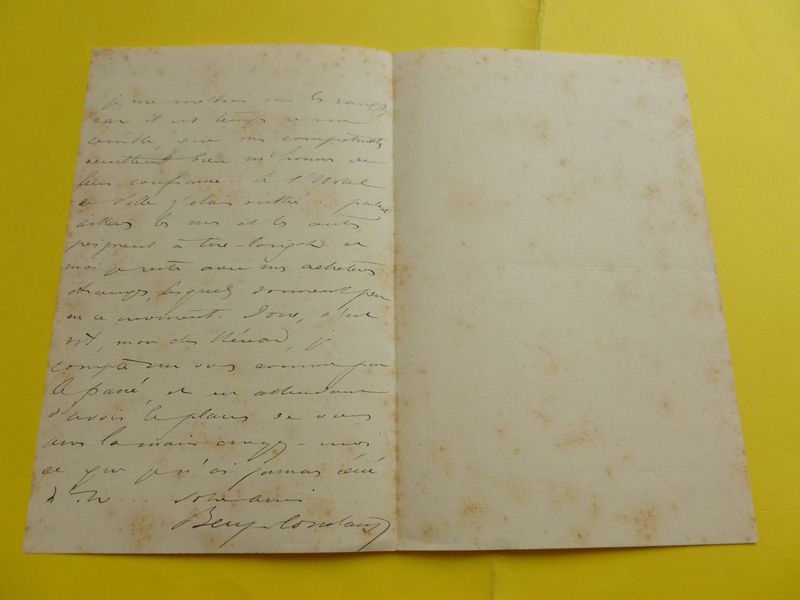 je me mettrai sur les rangs,
car il est temps ce me
semble, que mes compatriotes
veuillent bien m'honorer de
leur confiance. A l'Hotel
de Ville j'étais oublié. partout
ailleurs les uns et les autres
peignent à tire-larigot et
moi je reste avec mes acheteurs
étrangers, lesquels donnent peu
en ce moment. Donc, c'est
dit, mon cher, je
compte sur vous comme par
le passé, et en attendant
d'avoir le plaisir de vous
serrer la main croyez-moi
ce que je n'ai jamais cessé
d'être... votre ami
Benj-Constant